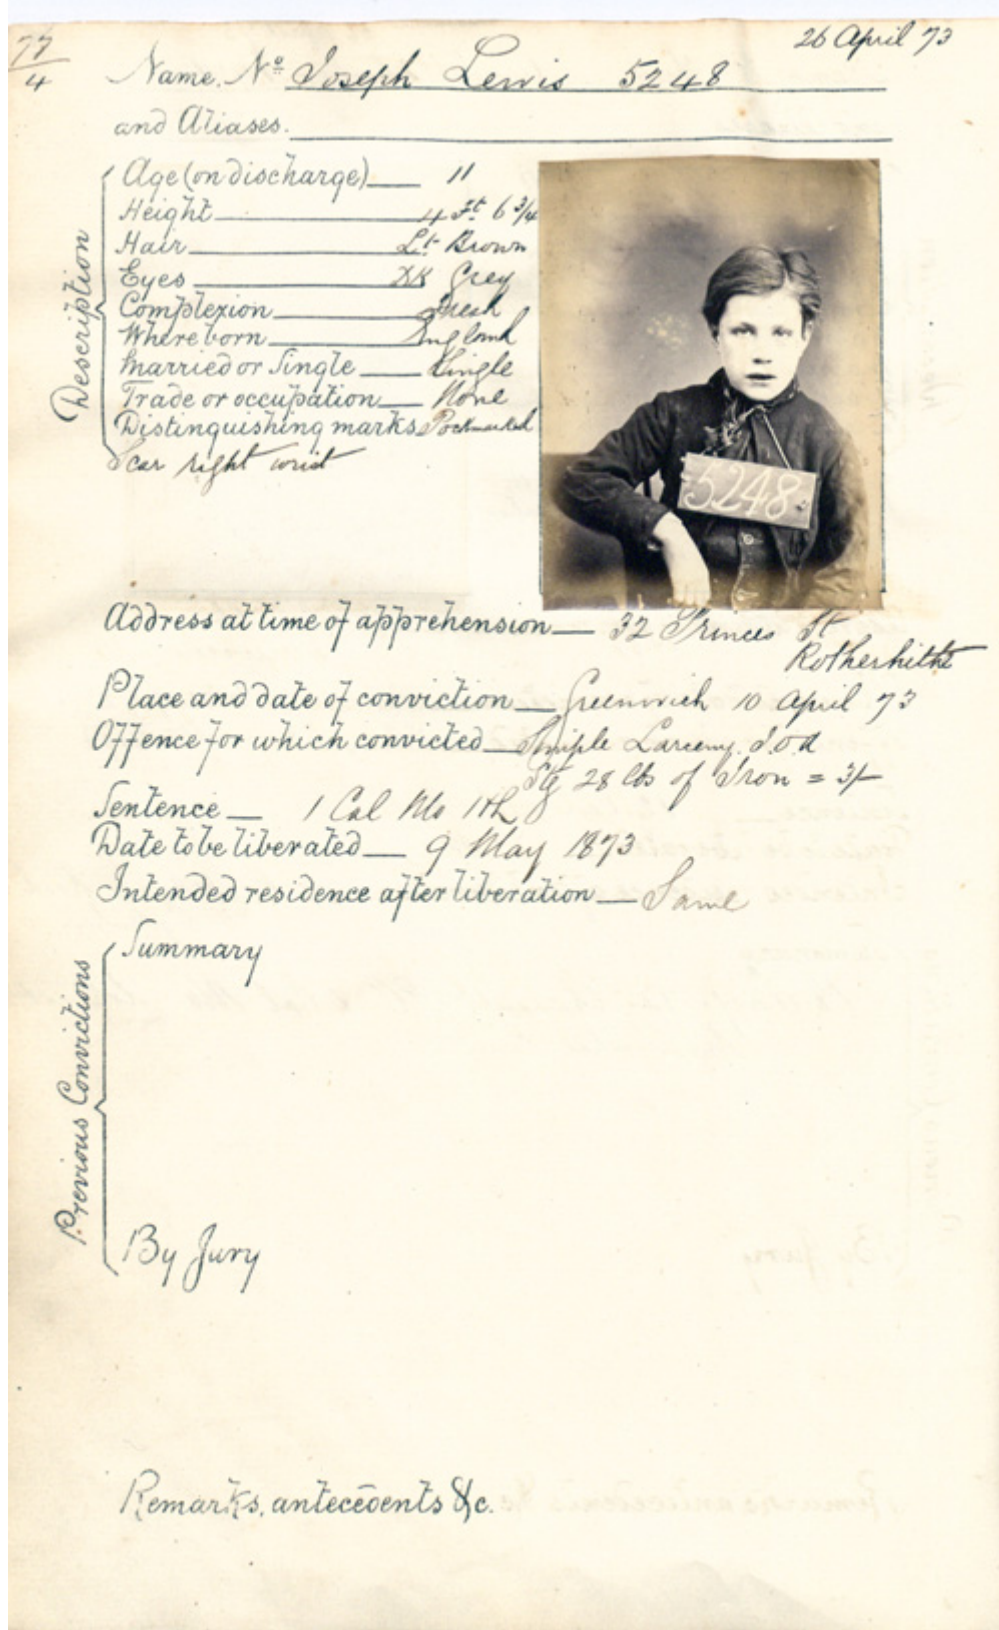 77/4
26 April 73
Name. No Joseph Lewis 5248
and Aliases.
Description
Age (on discharge) 11
Height 4 Ft. 6 3/4
Hair Lt. Brown
Eyes Dk Grey
Complexion Fresh
Where born England
Married or Single Single
Trade or occupation None
Distinguishing marks Pockmarked
Scar right wrist
5248
Address at time of apprehension 32 Princes St
Rotherhithe
Place and date of conviction Greenwich 10 April 73
Offence for which convicted Simple Larceny J.O.A
Stg 28 lbs of Iron = 3/-
Sentence 1 Cal Mo Hd L
Date to be liberated 9 May 1873
Intended residence after liberation Same
Previous Convictions
Summary
By Jury
Remarks, antecedents &c.